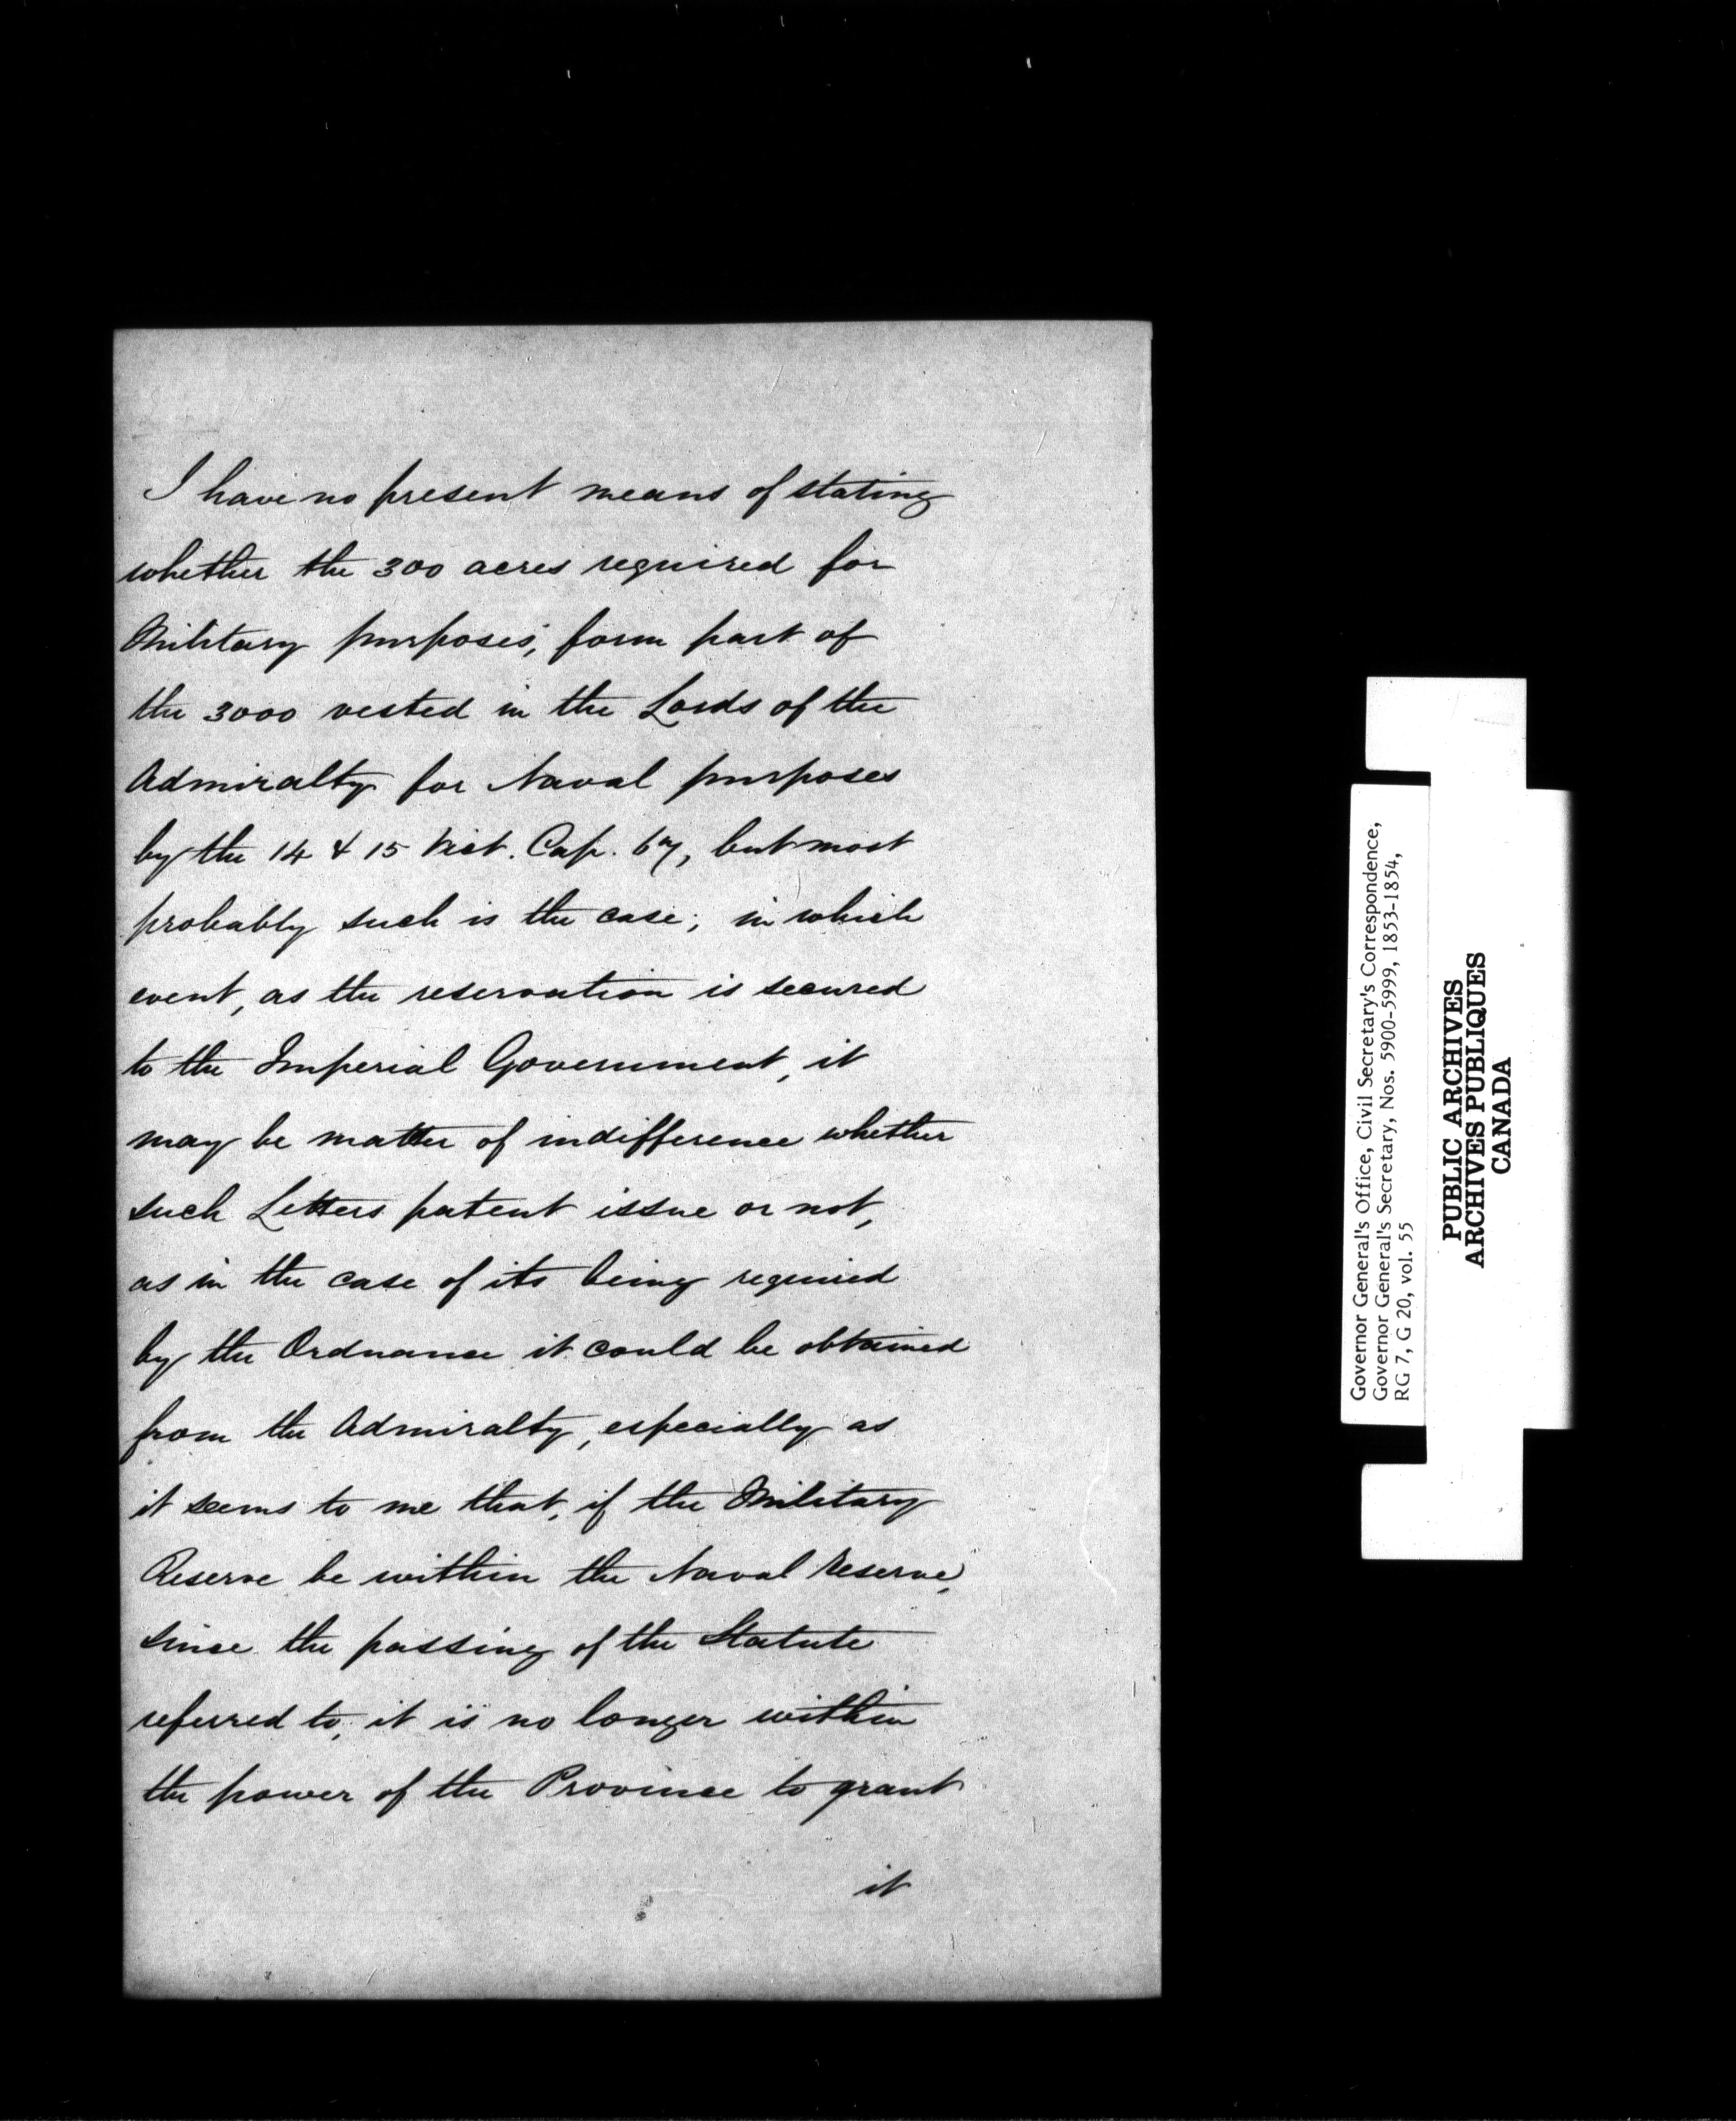 I have no present means of stating
whether the 300 acres required for
Military purposes, form part of
the 3000 vested in the Lords of the
Admiralty for Naval purposes
by the 14 & 15 Vict. Cap. 67, but most
probably such is the case; in which
event, as the reservation is secured
to the Imperial Government, it
may be matter of indifference whether
such Letters patent issue or not,
as in the case of its being required
by the Ordnance it could be obtained
from the Admiralty, especially as
it seems to me that, if the Military
Reserve be within the Naval reserve,
since the passing of the Statute
referred to, it is no longer within
the power of the Province to grant
it
Governor General's Office, Civil Secretary's Correspondence,
Governor General's Secretary, Nos. 5900-5999, 1853-1854,
RG 7, G 20, vol. 55
PUBLIC ARCHIVES
ARCHIVES PUBLIQUES
CANADA